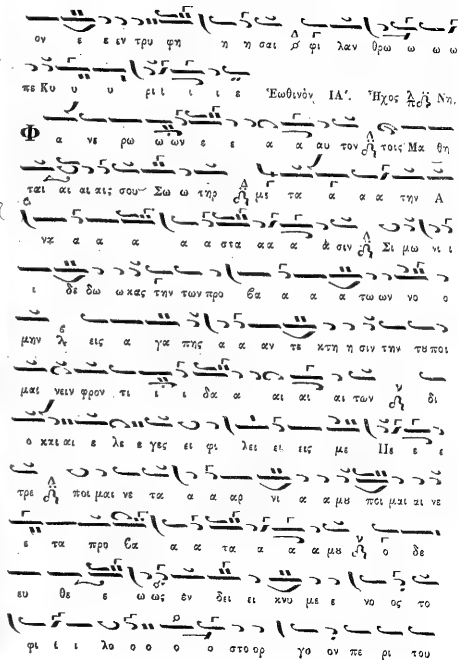 ον ε ε εν τρυ φη η η σαι φι λαν θρω ω ω ω
πε Κυ υ υ ρι ι ι ε Ἑωθινὸν ΙΑ΄. Ἦχος Νη.
Φ α νε ρω ω ων ε ε α α αυ τον τοις Μα θη
ταὶ αι αι αις σου Σω ω τηρ με τα α α α την Α
να α α α α α στα α α α α σιν Σι μω νι ι
ι δε δω ω κας την των προ βα α α α τω ων νο ο
μην εις α γα πης α α αν τε κτη η σιν την του ποι
μαι νειν φρον τι ι ι δα α αι αι αι των δι
ο και αι ε λε ε γες ει φι λει ει εις με Πε ε ε
τρε ποι μαι νε τα α α αρ νι α α μου ποι μαι αι νε
ε τα προ βα α α τα α α α μου ο δε
ευ θε ε ε ω ως εν δει ει κνυ με ε νο ος το
φι ι ι λο ο ο ο ο στο ορ γο ον πε ρι του